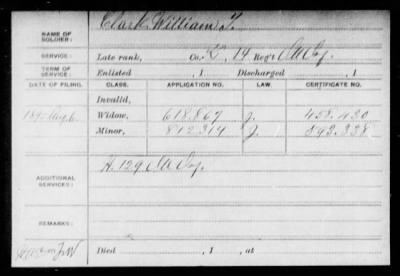 NAME OF SOLDIER: Clark William T.
SERVICE: Late rank, Co. K, 14 Reg't Ill Inf.
TERM OF SERVICE: Enlisted , 1 Discharged , 1
DATE OF FILING. CLASS. APPLICATION NO. LAW. CERTIFICATE NO.
Invalid,
May 6 Widow, 618.867 J. 458.430
Minor, 812.314 J. 593.338
ADDITIONAL SERVICES: H. 129 Ill Inf.
REMARKS:
Died , 1 , at